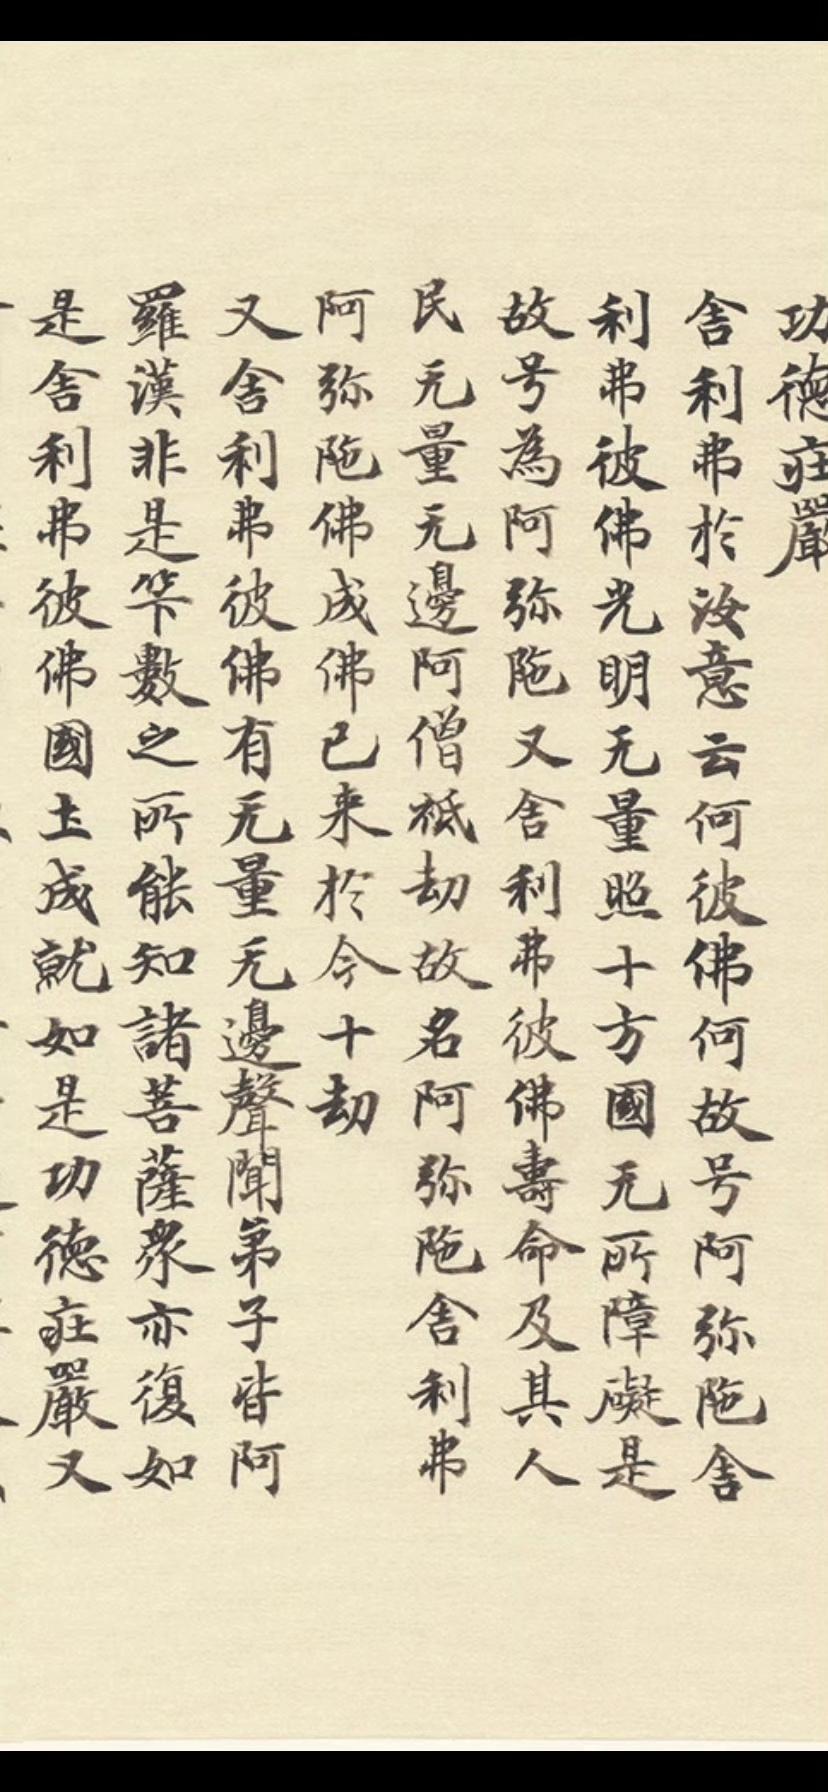 功德莊嚴
舍利弗於汝意云何彼佛何故号阿弥陁舍
利弗彼佛光明无量照十方國无所障礙是
故号為阿弥陁又舍利弗彼佛壽命及其人
民无量无邊阿僧祇劫故名阿弥陁舍利弗
阿弥陁佛成佛已来於今十劫
又舍利弗彼佛有无量无邊聲聞弟子皆阿
羅漢非是筭數之所能知諸菩薩衆亦復如
是舍利弗彼佛國土成就如是功德莊嚴又